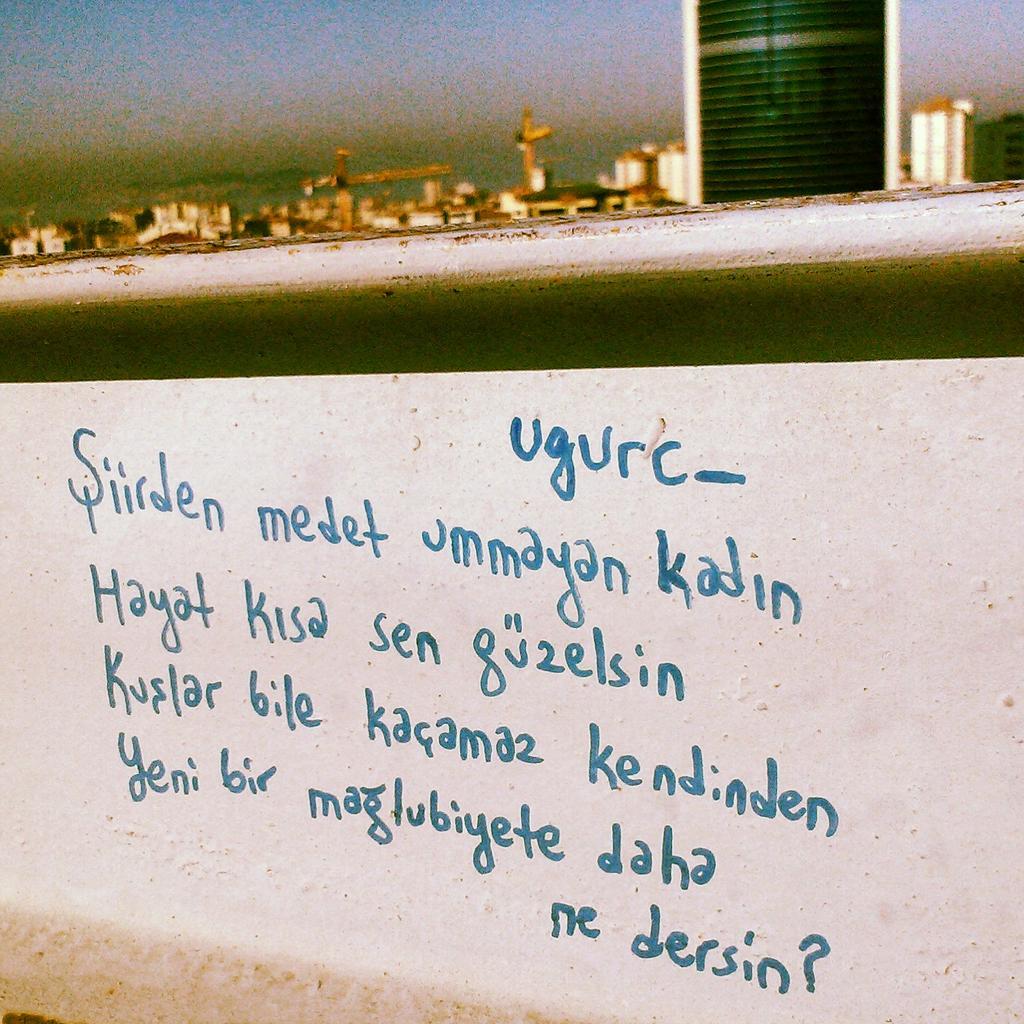 ugurc_
Şiirden medet ummayan kadın
Hayat kısa sen güzelsin
Kuşlar bile kaçamaz kendinden
Yeni bir mağlubiyete daha
ne dersin?